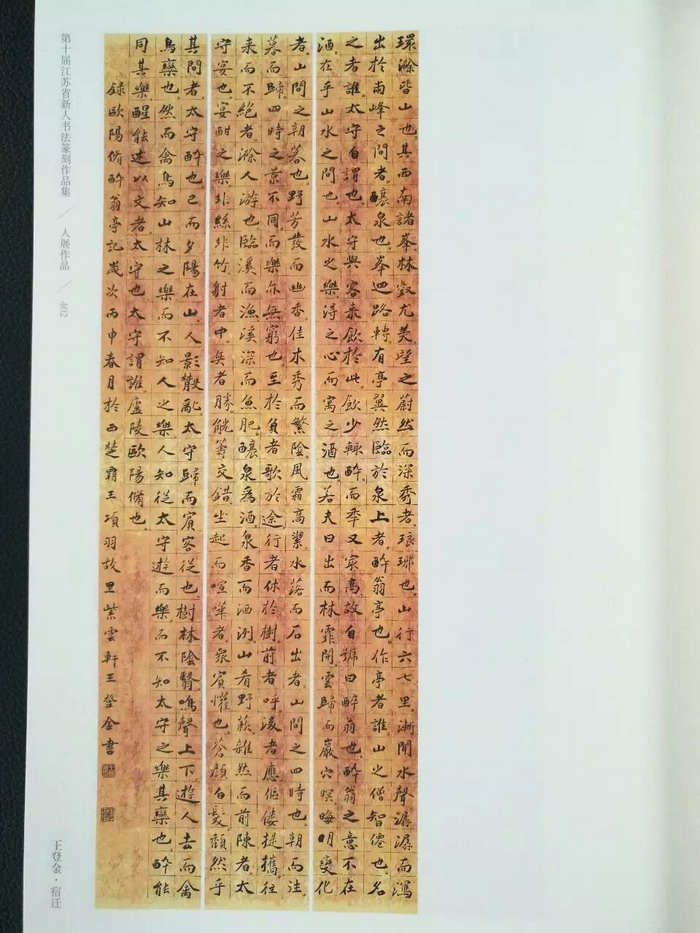 環滁皆山也其西南諸峯林壑尤美望之蔚然而深秀者琅琊也山行六七里漸聞水聲潺潺而瀉
出於兩峰之間者釀泉也峯迴路轉有亭翼然臨於泉上者醉翁亭也作亭者誰山之僧智僊也名
之者誰太守自謂也太守與客来飲於此飲少輒醉而年又冣高故自號曰醉翁也醉翁之意不在
酒在乎山水之間也山水之樂得之心而寓之酒也若夫日出而林霏開雲歸而巖穴暝晦明變化
者山間之朝暮也野芳發而幽香佳木秀而繁陰風霜高潔水落而石出者山間之四時也朝而往
暮而歸四時之景不同而樂亦無窮也至於負者歌於途行者休於樹前者呼後者應傴僂提攜往
来而不絕者滁人游也臨溪而漁溪深而魚肥釀泉爲酒泉香而酒洌山肴野蔌雜然而前陳者太
守宴也宴酣之樂非絲非竹射者中奕者勝觥籌交錯坐起而喧譁者衆賓懽也蒼顏白髮頹然乎
其間者太守醉也已而夕陽在山人影散亂太守歸而賓客從也樹林陰翳鳴聲上下遊人去而禽
鳥樂也然而禽鳥知山林之樂而不知人之樂人知從太守遊而樂而不知太守之樂其樂也醉能
同其樂醒能述以文者太守也太守謂誰廬陵歐陽脩也
録歐陽脩醉翁亭記歲次丙申春月於西楚霸王項羽故里紫雲軒王登金書
第十届江苏省新人书法篆刻作品集 / 入展作品 / 402
王登金·宿迁